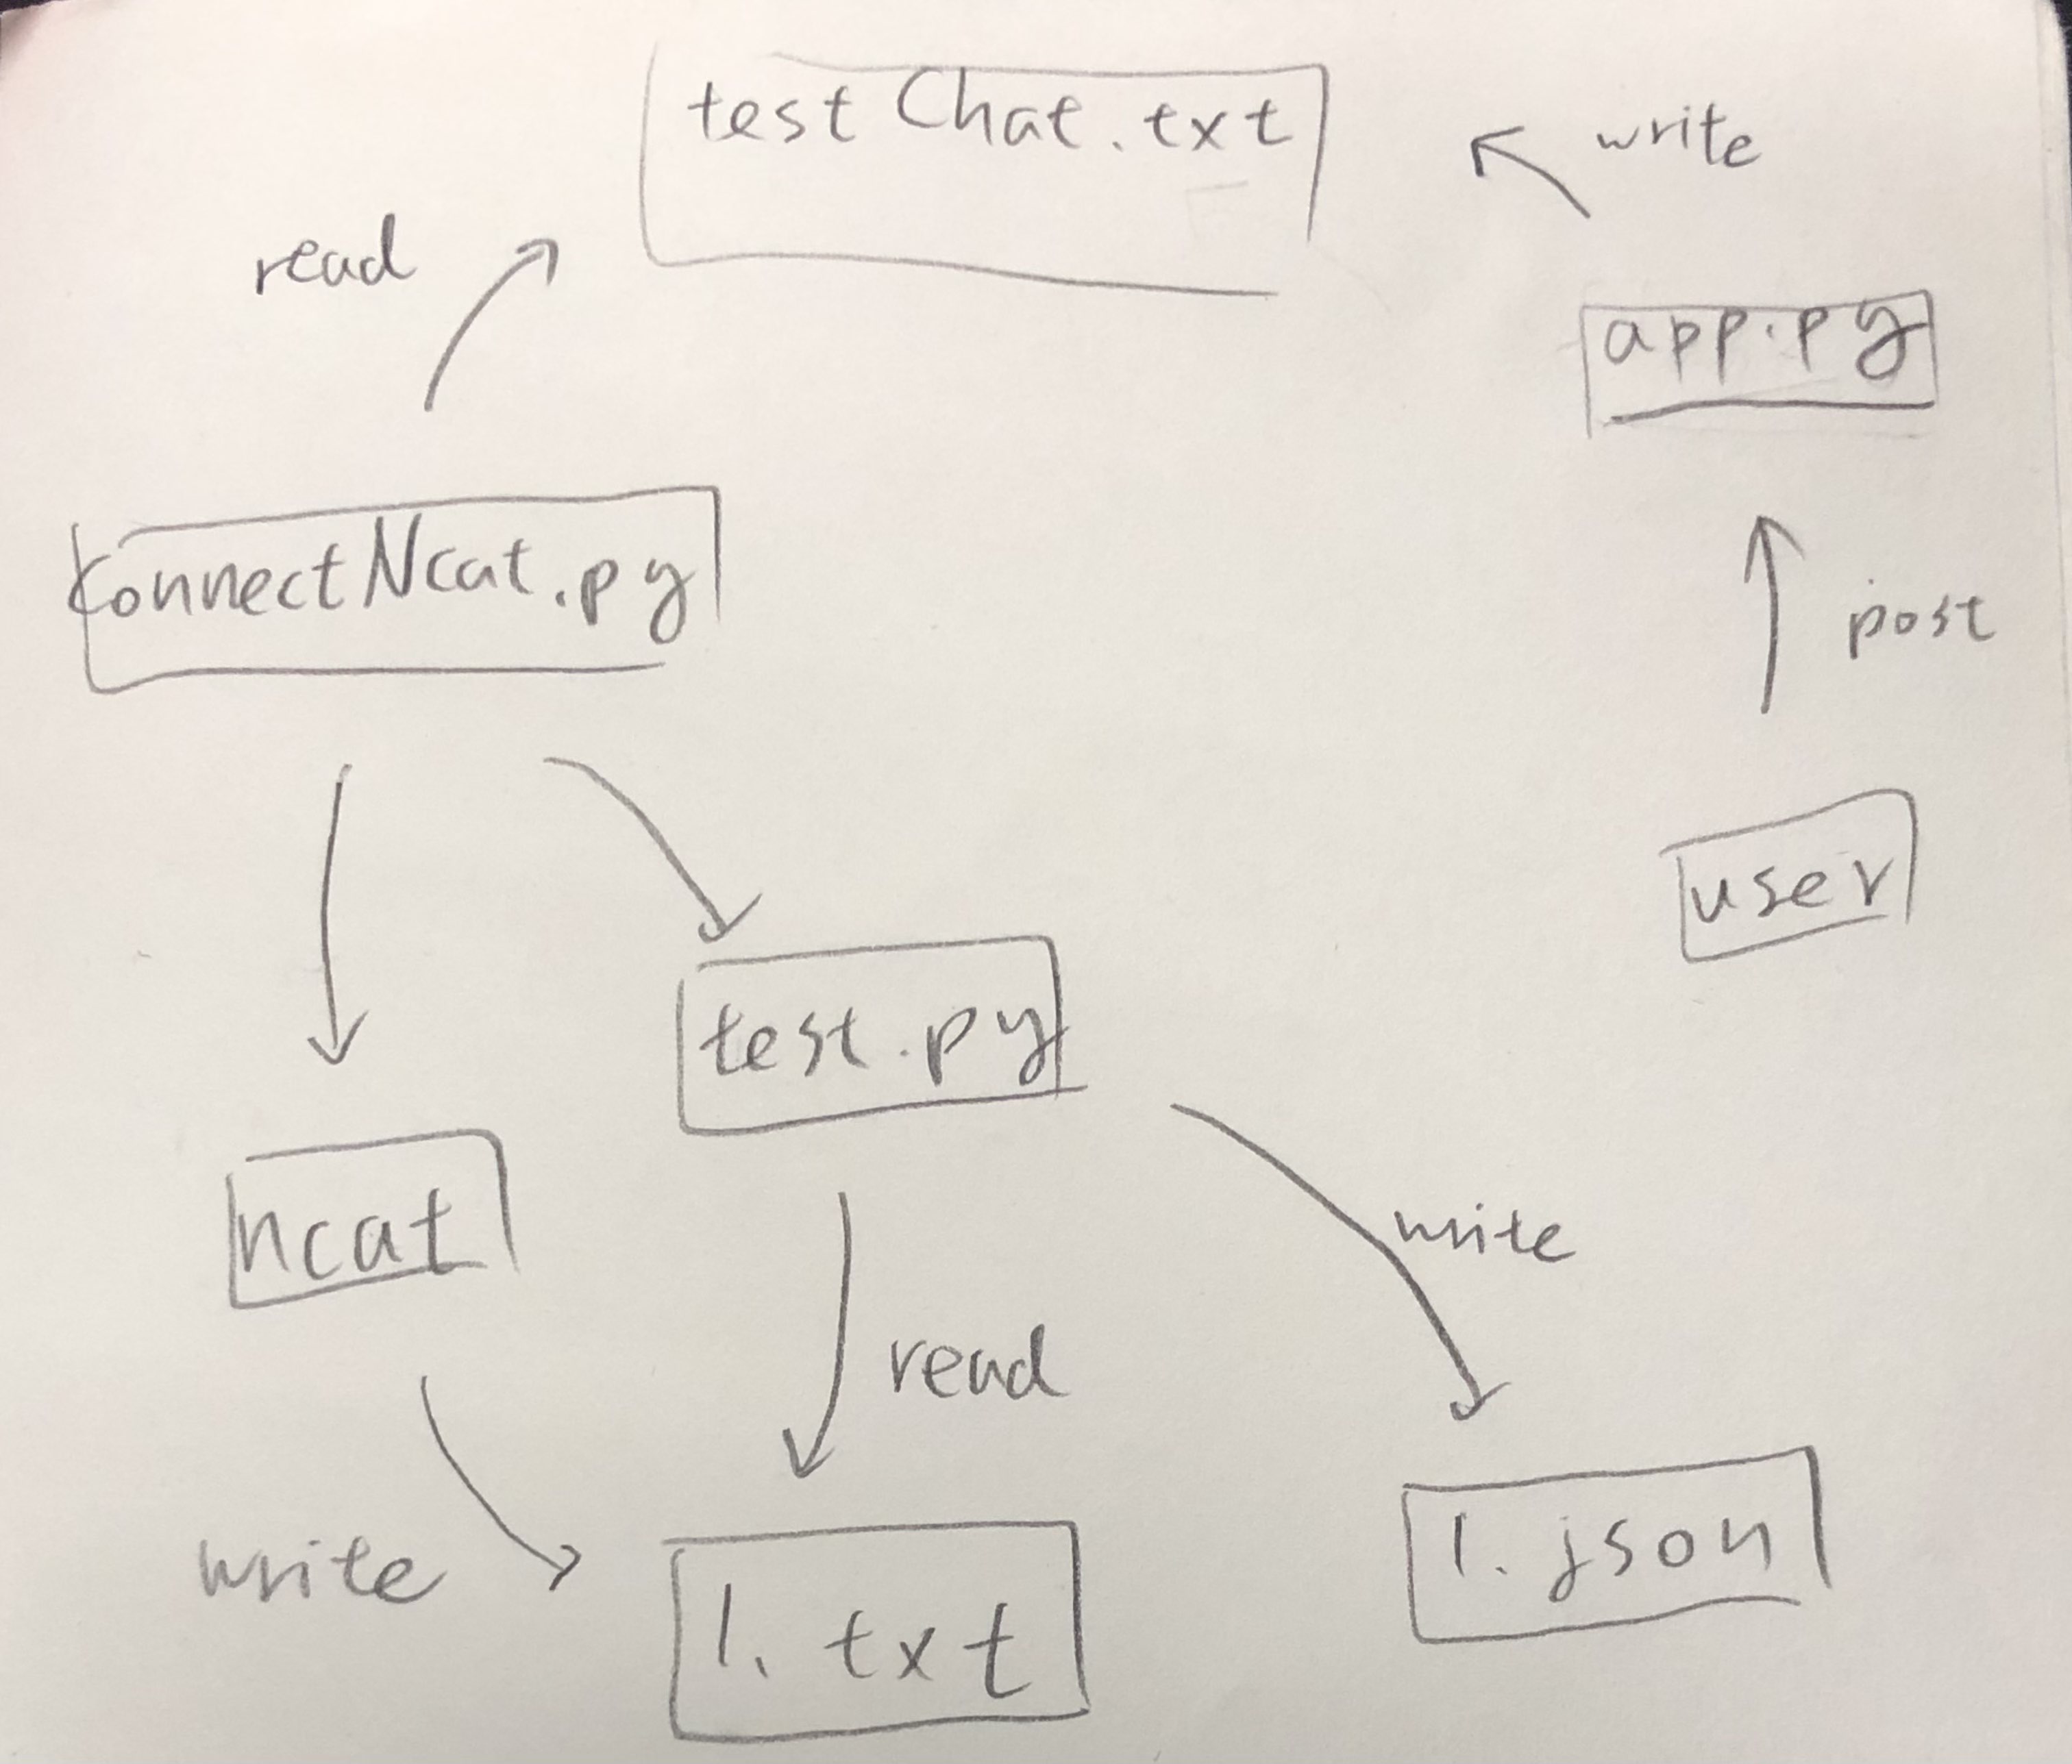 testChat.txt
write
read
app.py
connectNcat.py
post
user
test.py
ncat
write
read
write
1.json
1.txt